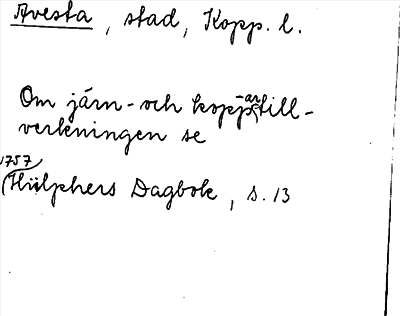 Avesta, stad, Kopp. l.
Om järn- och kopp-ar-till-
verkningen se
1757
(Hülphers Dagbok, s. 13